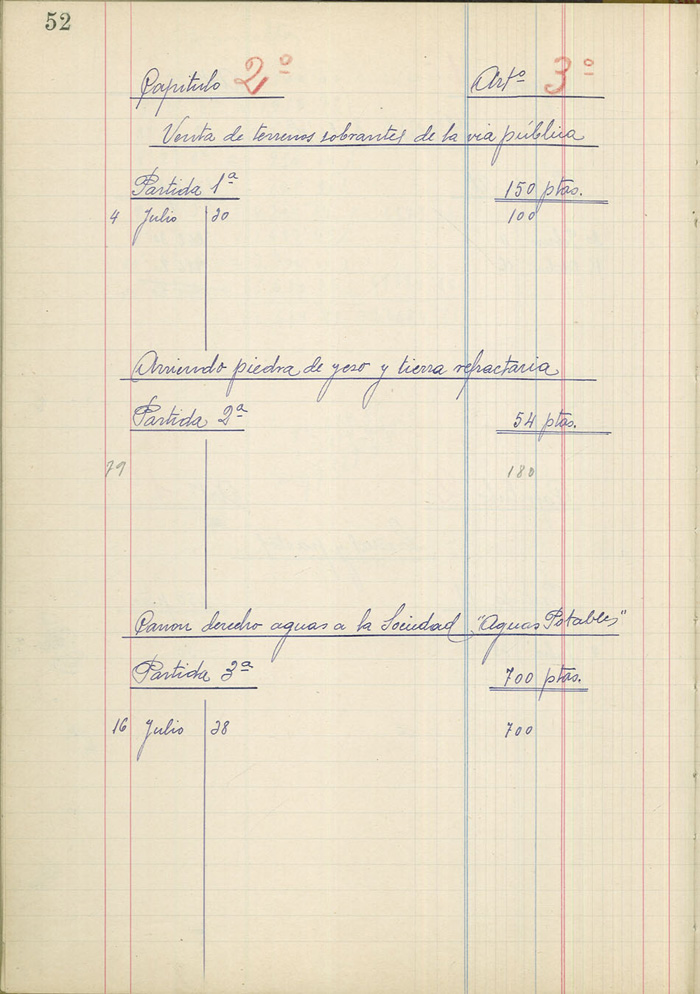 52
Capitulo 2º Artº 3º
Venta de terrenos sobrantes de la via pública
Partida 1ª 150 ptas.
4 Julio 20 100
Arriendo piedra de yeso y tierra refractaria
Partida 2ª 54 ptas.
79 180
Canon derecho aguas a la Sociedad "Aguas Potables"
Partida 3ª 700 ptas.
16 Julio 28 700